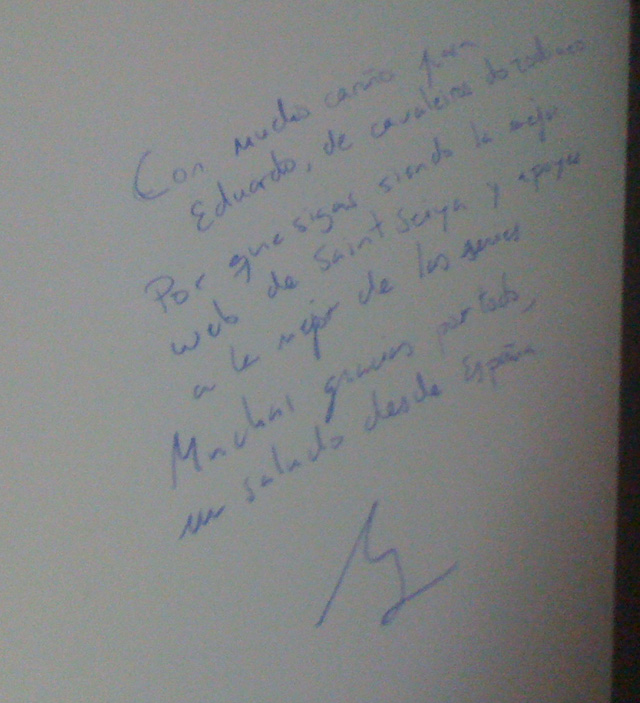 Con mucho cariño para
Eduardo, de cavaleiros do zodiaco
Por que sigas siendo la mejor
web de Saint Seiya y apoyes
a la mejor de las series
Muchas gracias por todo,
un saludo desde España